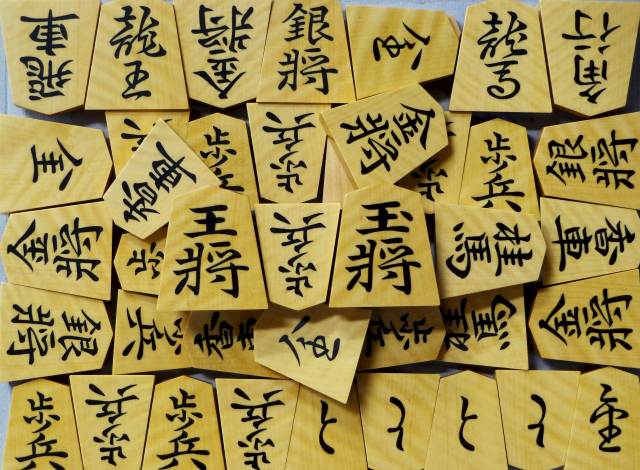 飛車
龍王
金将
銀将
龍馬
角行
歩兵
歩兵
金将
歩兵
銀将
金将
歩
王将
歩兵
玉将
桂馬
香車
銀将
歩兵
香車
歩兵
桂馬
金将
歩兵
歩兵
歩兵
歩兵
と
と
と
と